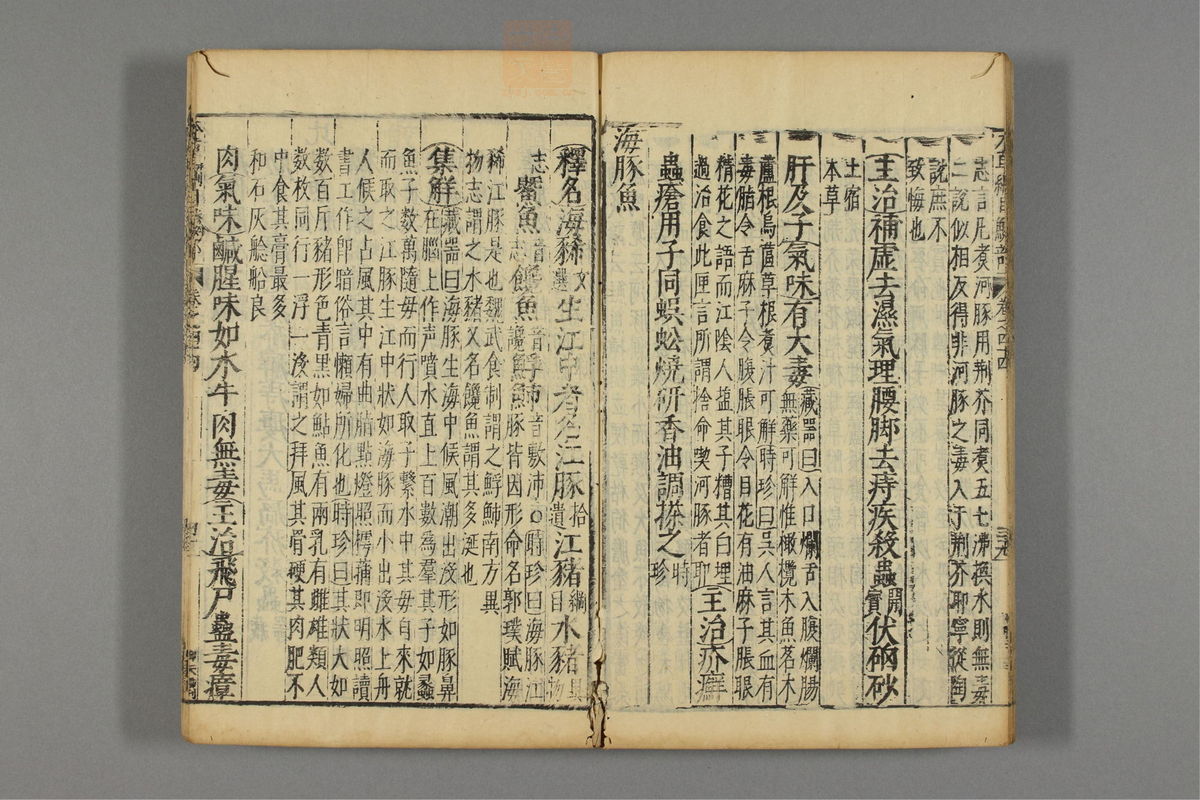 本草綱目鱗部 卷之四四
志言凡煮河豚用荆芥同煮五七沸換水則無毒
二說似相反得非河豚之毒入于荆芥耶寧從陶
說庶不
致悔也
主治補虛去濕氣理腰脚去痔疾殺蟲開寳伏硇砂
土宿
本草
肝及子氣味有大毒藏器曰入口爛舌入腹爛腸
無藥可解惟橄欖木魚茗木
蘆根烏䓴草根煮汁可解時珍曰吳人言其血有
毒脂令舌麻子令腹脹眼令目花有油麻子脹眼
精花之語而江陰人鹽其子糟其白埋
過治食此俚言所謂捨命喫河豚者耶主治疥癬
蟲瘡用子同蜈蚣燒研香油調搽之時珍
海豚魚
釋名海狶文選生江中者名江豚拾遺江豬綱目水豬異物
志鱀魚音忌饞魚音讒䱐䰽音敷沛○時珍曰海豚江
豚皆因形命名郭璞賦海
狶江豚是也魏武食制謂之䱐䰽南方異
物志謂之水豬又名饞魚謂其多涎也
集解藏器曰海豚生海中候風潮出沒形如豚鼻
在腦上作声噴水直上百數為羣其子如蠡
魚子數萬隨毋而行人取子繫水中其毋自來就
而取之江豚生江中狀如海豚而小出沒水上舟
人候之占風其中有曲脂點燈照樗蒱即明照讀
書工作即暗俗言懶婦所化也時珍曰其狀大如
数百斤豬形色青黑如鮎魚有兩乳有雌雄類人
数枚同行一浮一沒謂之拜風其骨硬其肉肥不
中食其膏最多
和石灰艌船良
肉氣味鹹腥味如水牛肉無毒主治飛尸蠱毒瘴